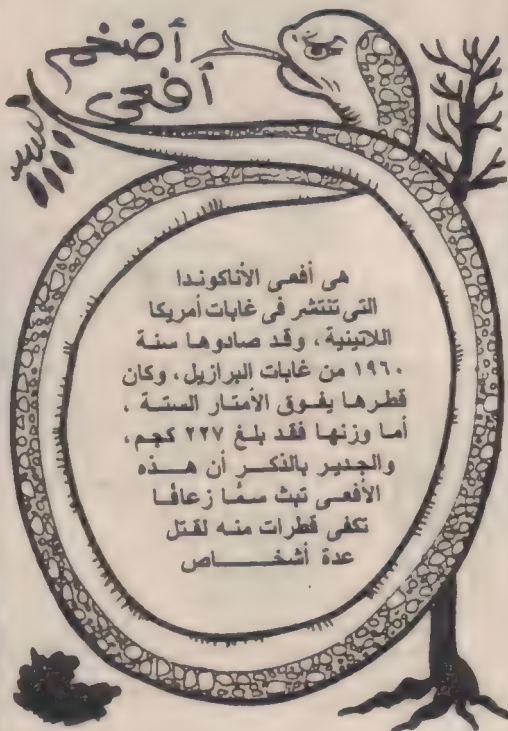 أضخم
أفعى
هى أفعى الأناكوندا
التى تنتشر فى غابات أمريكا
اللاتينية ، وقد صادوها سنة
١٩٦٠ من غابات البرازيل ، وكان
قطرها يفوق الأمتار الستة ،
أما وزنها فقد بلغ ٢٢٧ كجم ،
والجدير بالذكر أن هذه
الأفعى تبث سمًا زعافًا
تكفى قطرات منه لقتل
عدة أشخاص